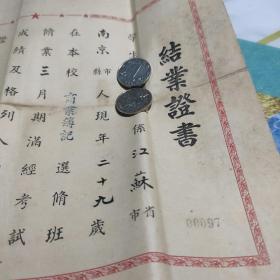 結業證書
00097
學
係江蘇省市
南京市縣人現年二十九歲
在本校商業簿記選脩班
脩業三月期滿經考試
成績及格列入